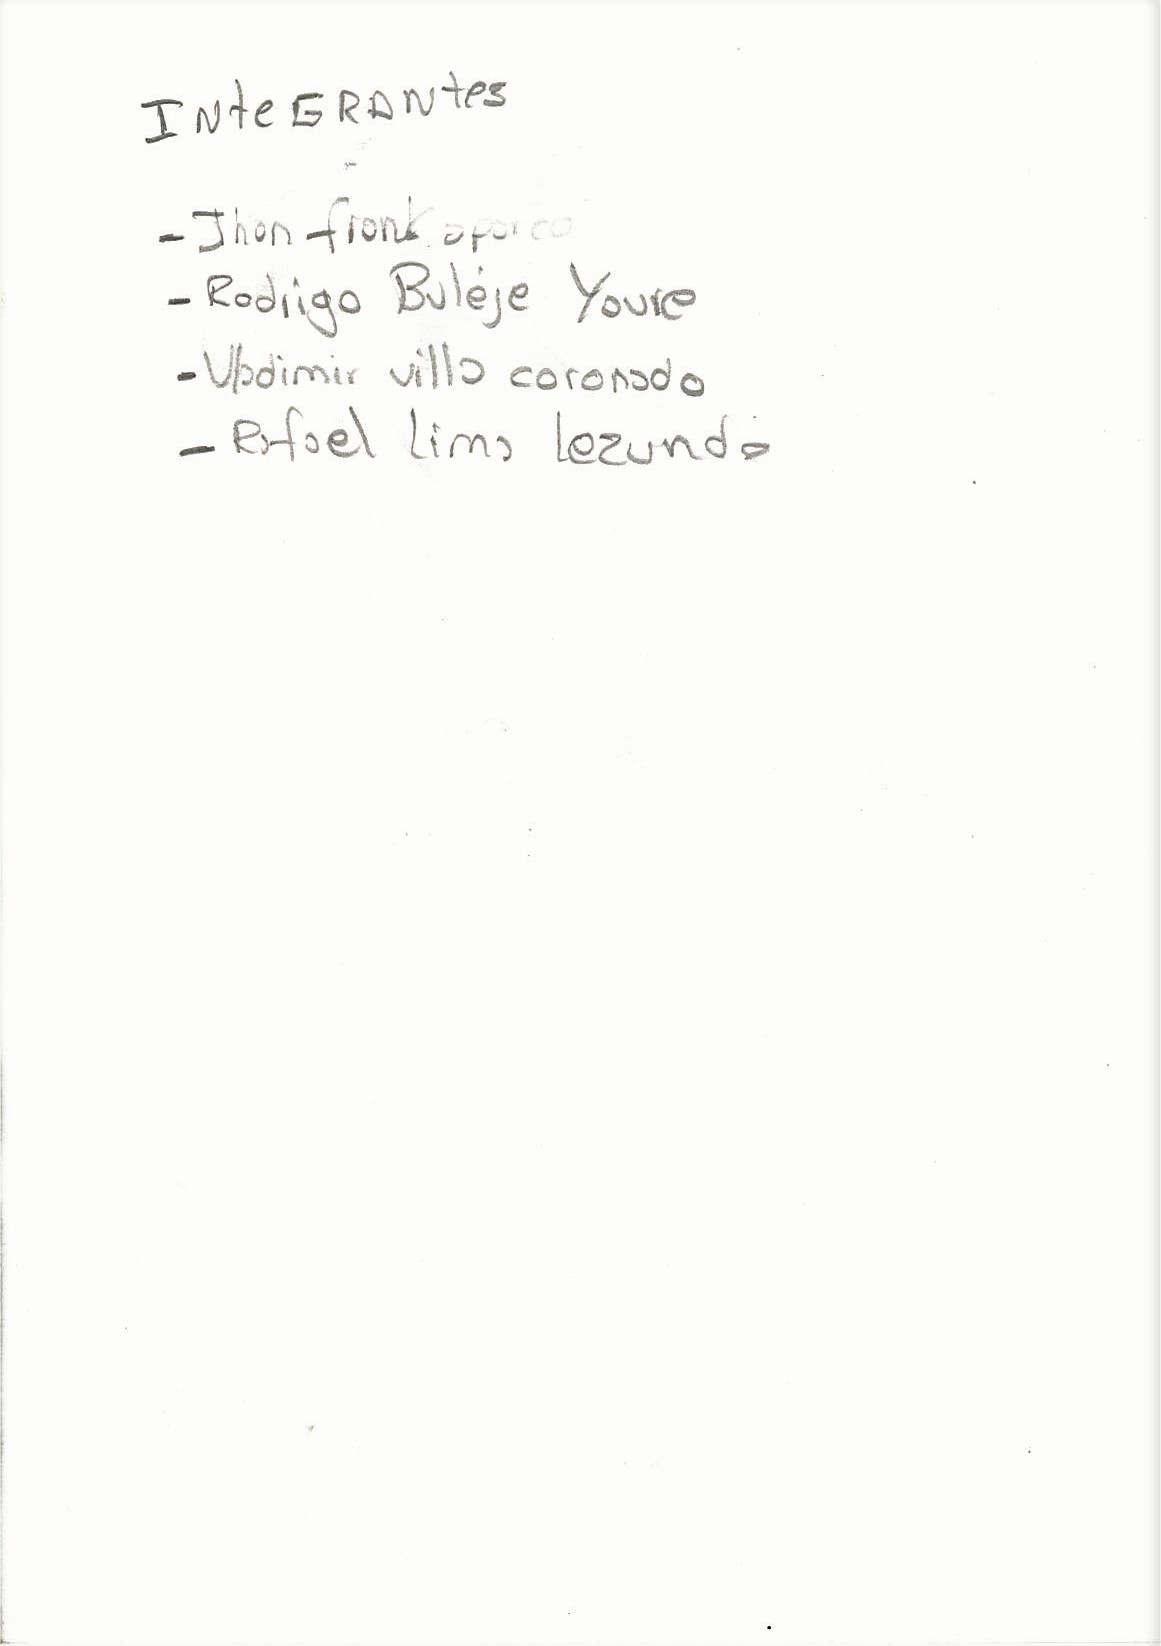 INteGRANtes
- Jhon frank aparco
- Rodrigo Buleje Youre
- Vladimir villa coronado
- Rafael lima lezundo